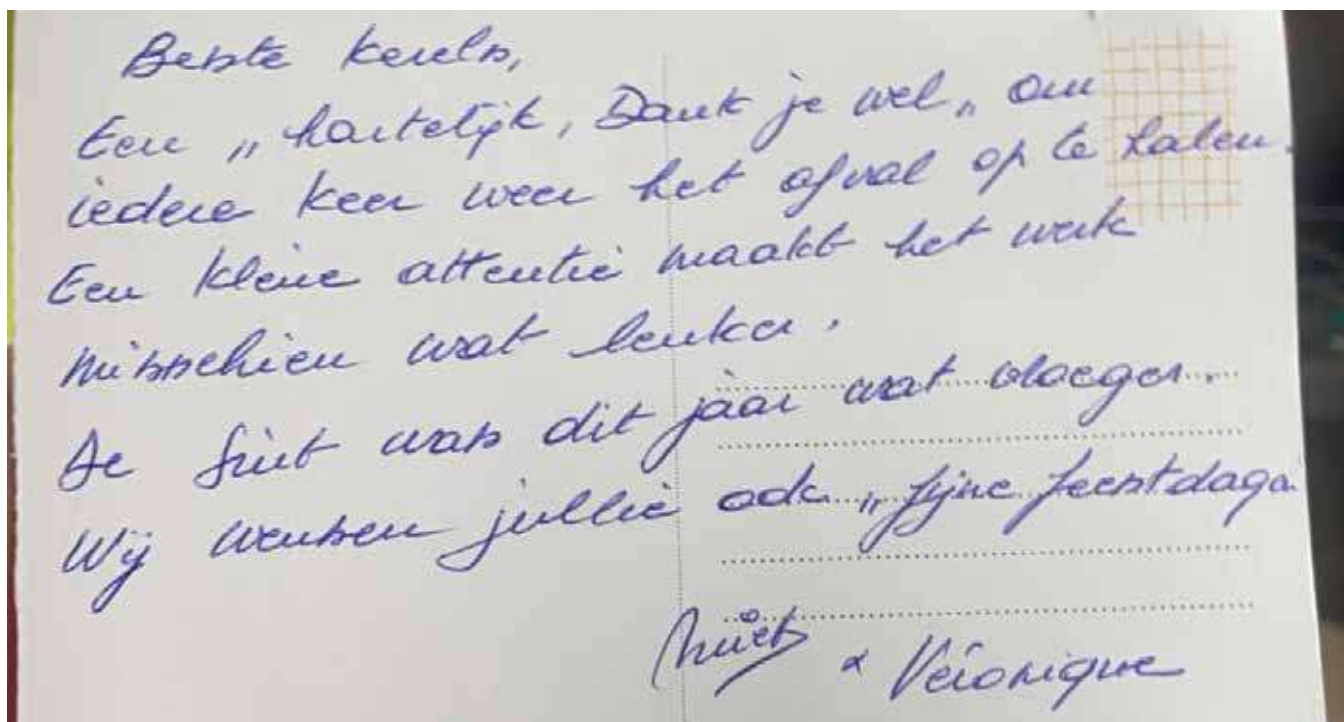 Beste kerels,
Een „hartelijk, Dank je wel„ om
iedere keer weer het afval op te halen.
Een kleine attentie maakt het werk
misschien wat leuker.
De Sint was dit jaar wat vroeger.
Wij wensen jullie ook „fijne feestdagen
& Véronique